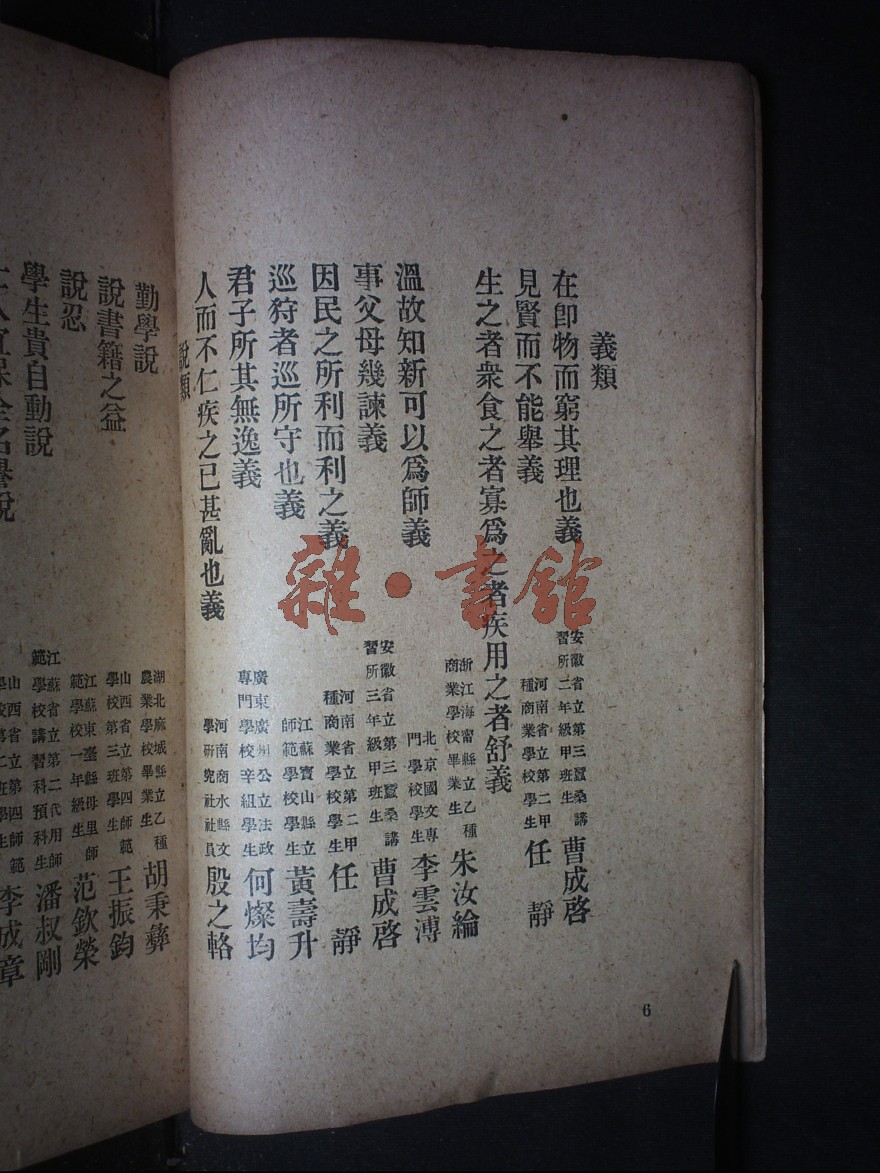 義類
在卽物而窮其理也義 安徽省立第三蠶桑講習所二年級甲班生 曹成啓
見賢而不能舉義 河南省立第二甲種商業學校學生 任靜
生之者衆食之者寡爲之者疾用之者舒義
浙江海甯縣立乙種商業學校畢業生 朱汝綸
溫故知新可以爲師義 北京國文專門學校學生 李雲溥
事父母幾諫義 安徽省立第三蠶桑講習所三年級甲班生 曹成啓
因民之所利而利之義 河南省立第二甲種商業學校學生 任靜
巡狩者巡所守也義 江蘇寶山縣立師範學校學生 黃壽升
君子所其無逸義 廣東廣州公立法政專門學校辛組學生 何燦均
人而不仁疾之已甚亂也義 河南商水縣文學研究社社員 殷之輅
說類
勤學說 湖北麻城縣立乙種農業學校畢業生 胡秉彝
說書籍之益 山西省立第四師範學校第三班學生 王振鈞
說忍 江蘇東臺縣母里師範學校一年級生 范欽榮
學生貴自動說 江蘇省立第二代用師範學校講習科預科生 潘叔剛
人宜保全名譽說 山西省立第四師範學校第二班學生 李成章
6
雜·書館